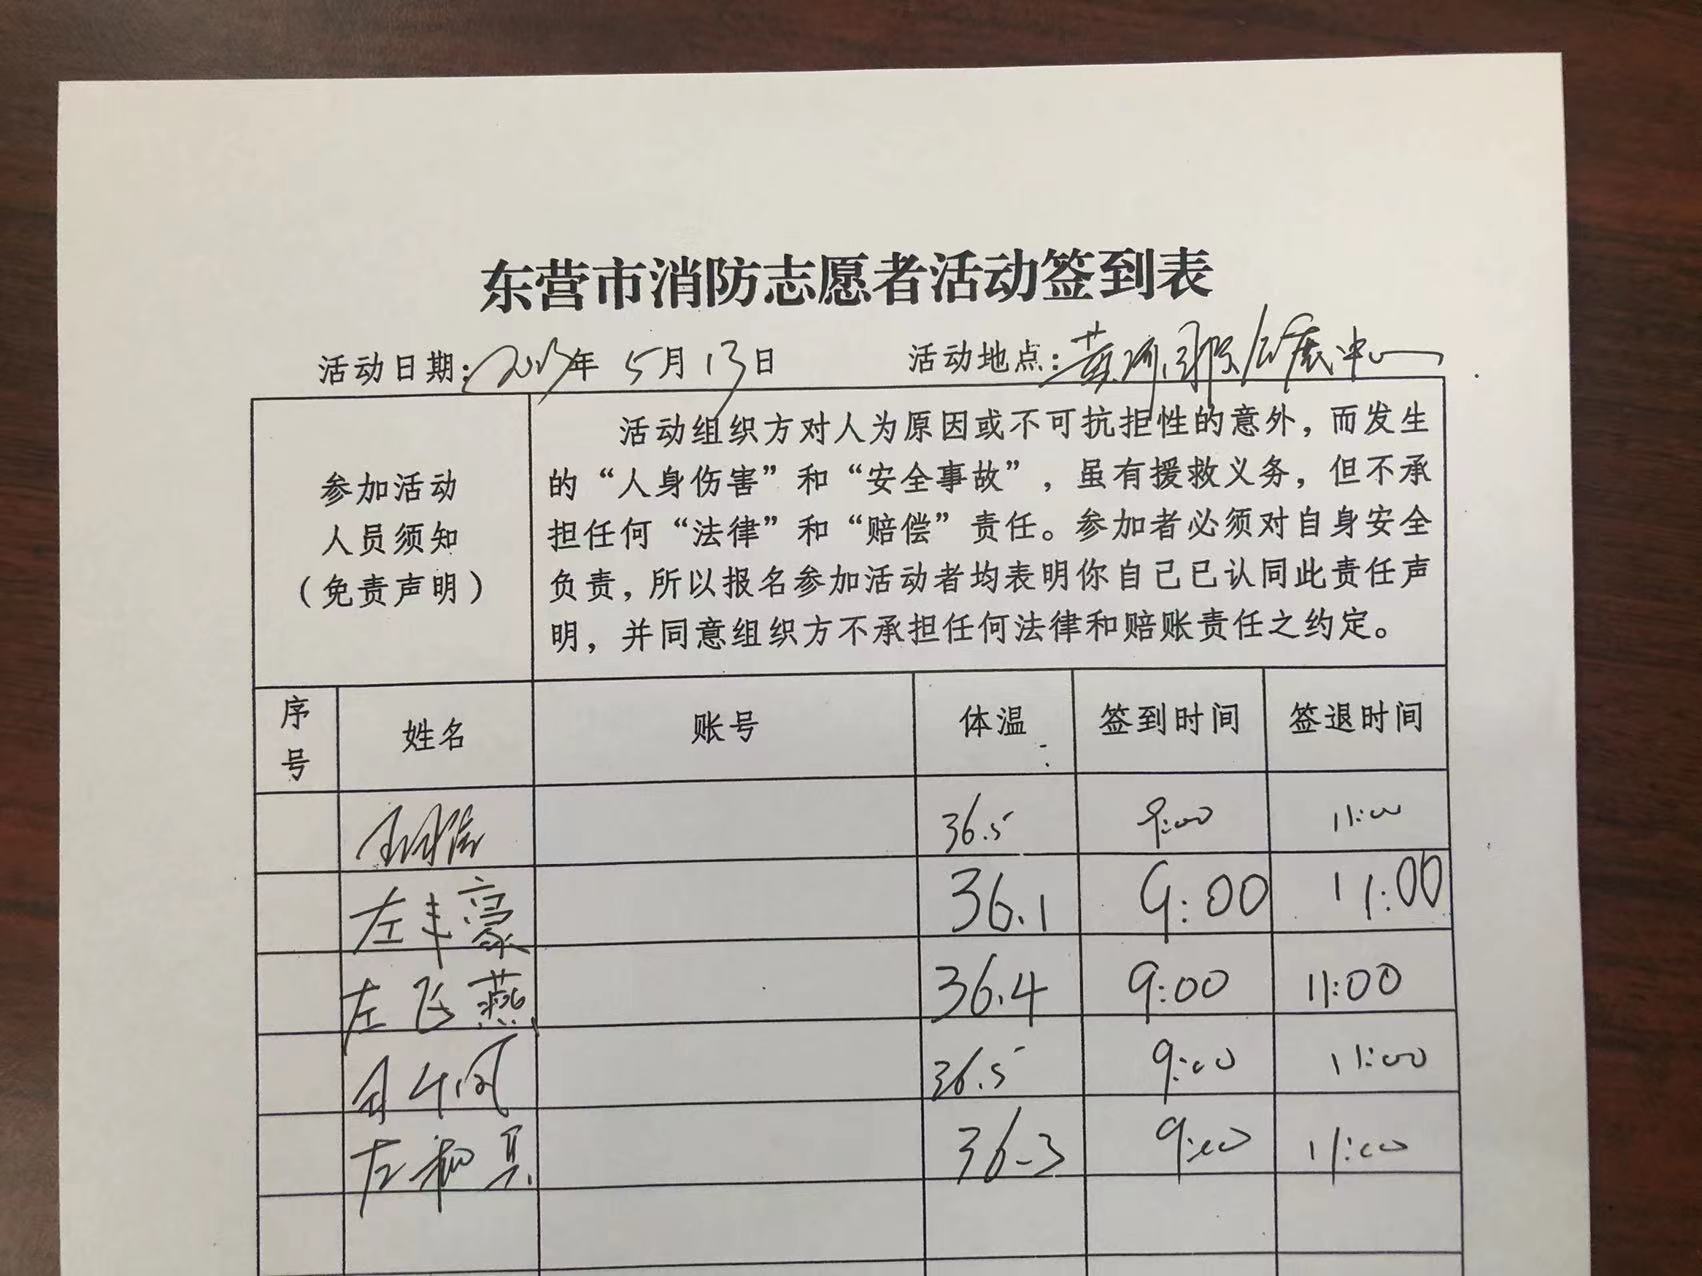 东营市消防志愿者活动签到表
活动日期: 年 5月13日 活动地点: 中心
参加活动
人员须知
（免责声明）
活动组织方对人为原因或不可抗拒性的意外，而发生
的“人身伤害”和“安全事故”，虽有援救义务，但不承
担任何“法律”和“赔偿”责任。参加者必须对自身安全
负责，所以报名参加活动者均表明你自己已认同此责任声
明，并同意组织方不承担任何法律和赔账责任之约定。
序号 姓名 账号 体温 签到时间 签退时间
36.5 9:00 11:00
左丰豪 36.1 9:00 11:00
左飞燕 36.4 9:00 11:00
36.5 9:00 11:00
左 36.3 9:00 11:00